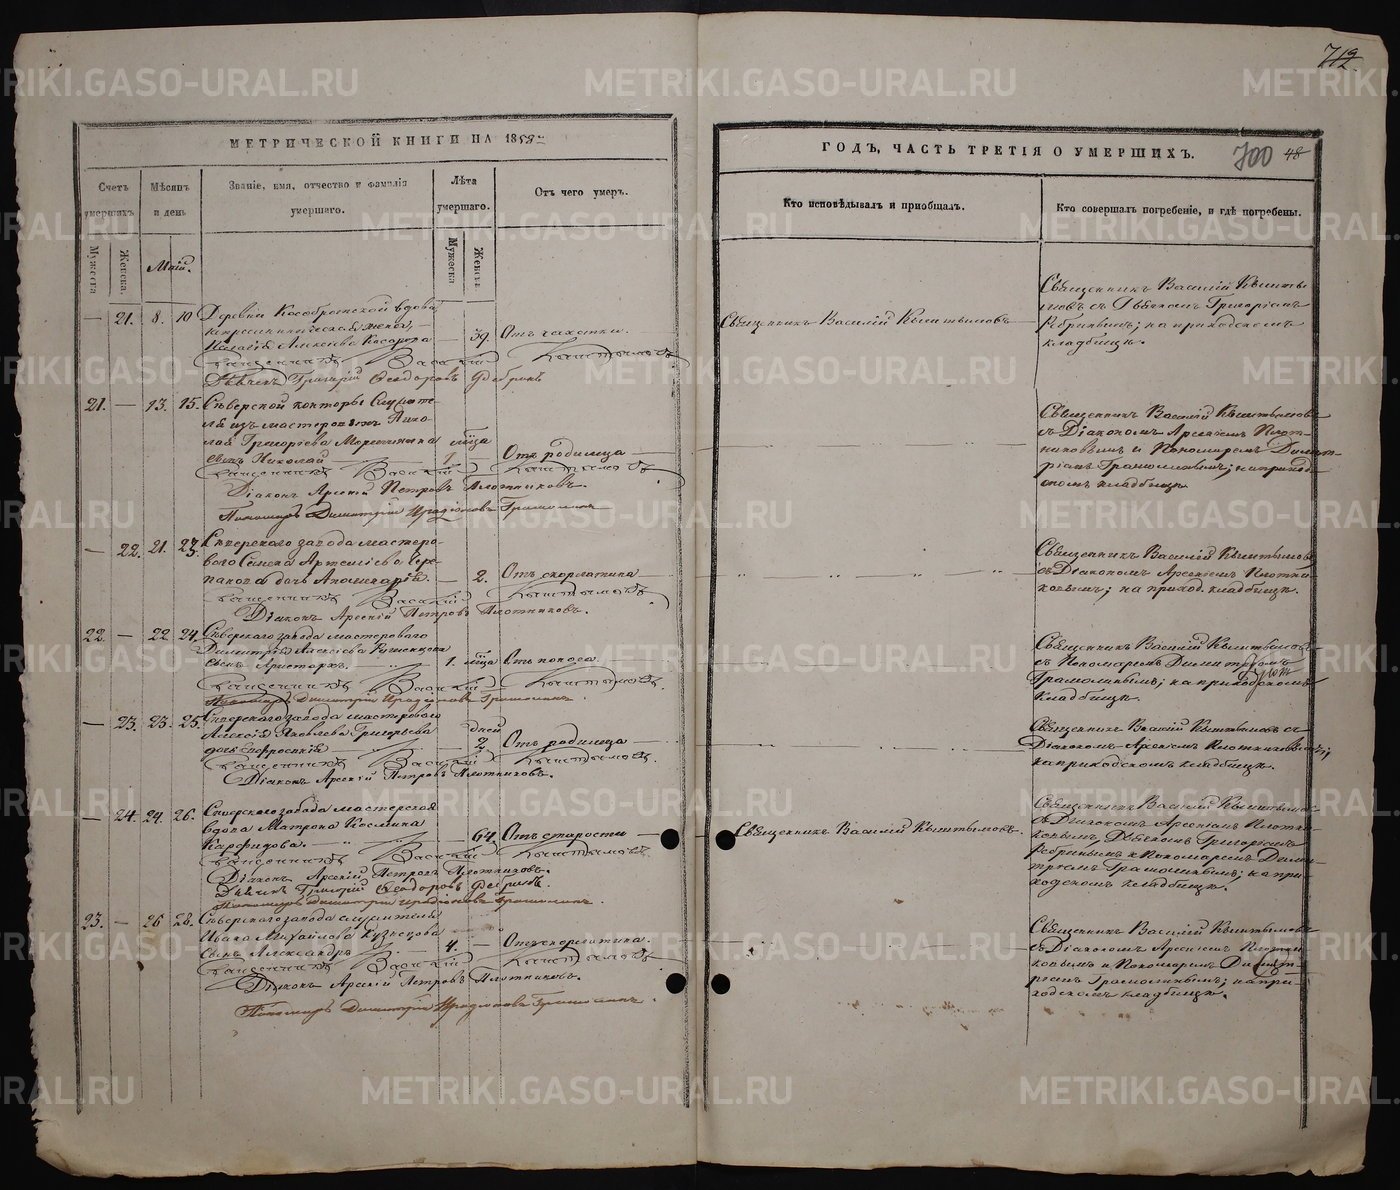 712
МЕТРИЧЕСКОЙ КНИГИ НА 1859
Счетъ умершихъ
Мѣсяцъ и день
Званіе, имя, отчество и фамилія умершаго.
Лѣта умершаго.
Отъ чего умеръ.
Мужеска
Женска.
Май.
Мужеска
Женска
— 21. 8. 10 Деревни Кособродской вдова
жена,
39. Отъ чахотки.
Священникъ Василій Кыштымовъ
Дьячекъ Григорій Ѳеодоровъ
21. — 13. 15. Сѣверской конторы Служите-
ля изъ мастеровыхъ Нико-
лая Григорьева
сынъ Николай 1 мца Отъ родимца
Священникъ Василій Кыштымовъ
Діаконъ Арсеній Петровъ Плотниковъ.
Пономарь Димитрій
— 22. 21. 23. Сѣверскаго завода мастеро-
ваго Семена Артемьева Чере-
панова дочь — 2. Отъ скорлатина
Священникъ Василій Кыштымовъ
Діаконъ Арсеній Петровъ Плотниковъ.
22. — 22 24. Сѣверскаго завода мастероваго
Димитрія Алексѣева
сынъ Аристархъ. 1. мца Отъ поноса
Священникъ Василій Кыштымовъ
Пономарь Димитрій
— 23. 23. 25. Сѣверскаго завода мастероваго
Алексія Яковлева Григорьева
дочь 2 дней Отъ родимца
Священникъ Василій Кыштымовъ
Діаконъ Арсеній Петровъ Плотниковъ.
— 24. 24. 26. Сѣверскаго завода мастерская
вдова Матрона Космина
64. Отъ старости
Священникъ Василій Кыштымовъ
Діаконъ Арсеній Петровъ Плотниковъ.
Дьячекъ Григорій Ѳеодоровъ
Пономарь Димитрій
23. — 26 28. Сѣверскаго завода служителя
Ивана Михайлова Кузнецова
сынъ Александръ 4. — Отъ скорлатина.
Священникъ Василій Кыштымовъ
Діаконъ Арсеній Петровъ Плотниковъ.
Пономарь Димитрій
ГОДЪ, ЧАСТЬ ТРЕТІЯ О УМЕРШИХЪ.
700 48
Кто исповѣдывалъ и приобщалъ.
Кто совершалъ погребеніе, и гдѣ погребены.
Священникъ Василій Кыштымовъ
Священникъ Василій Кышты-
мовъ съ Дьячкомъ Григоріемъ
на приходскомъ
кладбищѣ.
Священникъ Василій Кыштымовъ
съ Діакономъ Арсеніемъ Плот-
никовымъ и Пономаремъ Димит-
ріемъ на приход-
скомъ кладбищѣ.
Священникъ Василій Кыштымовъ
съ Діакономъ Арсеніемъ Плотни-
ковымъ; на приход. кладбищѣ.
Священникъ Василій Кыштымовъ
съ Пономаремъ Димитріемъ
на приходскомъ
кладбищѣ.
Священникъ Василій Кыштымовъ съ
Діакономъ Арсеніемъ Плотниковымъ;
на приходскомъ кладбищѣ.
Священникъ Василій Кыштымовъ
Священникъ Василій Кыштымовъ
съ Діакономъ Арсеніемъ Плотни-
ковымъ, Дьячкомъ Григоріемъ
и Пономаремъ Дими-
тріемъ на при-
ходскомъ кладбищѣ.
Священникъ Василій Кыштымовъ
съ Діакономъ Арсеніемъ Плотни-
ковымъ и Пономаремъ Димит-
ріемъ на при-
ходскомъ кладбищѣ.
METRIKI.GASO-URAL.RU